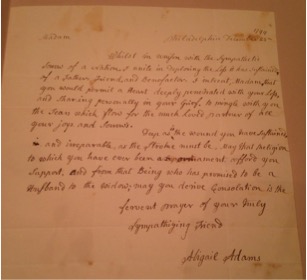 Philadelphia
Madam
Whilst in unison with the Sympathetic
Tears of a Nation, I unite in deploring the loss it has sustained
of a Father, friend, and Benefactor. I intreat, Madam, that
you would permit a Heart deeply penetrated with your loss,
and sharing personally in your Grief, to mingle with you
the Tears which flow for the much loved partner of all
your joys and Sorrows.
Deep is the wound you have sustained
and irreparable, as the Stroke must be, May that Religion
to which you have ever been an ornament afford you
Support, and from that Being who has promised to be a
Husband to the Widow, may you derive Consolation is the
fervent prayer of your truly
Sympathizing Friend
Abigail Adams